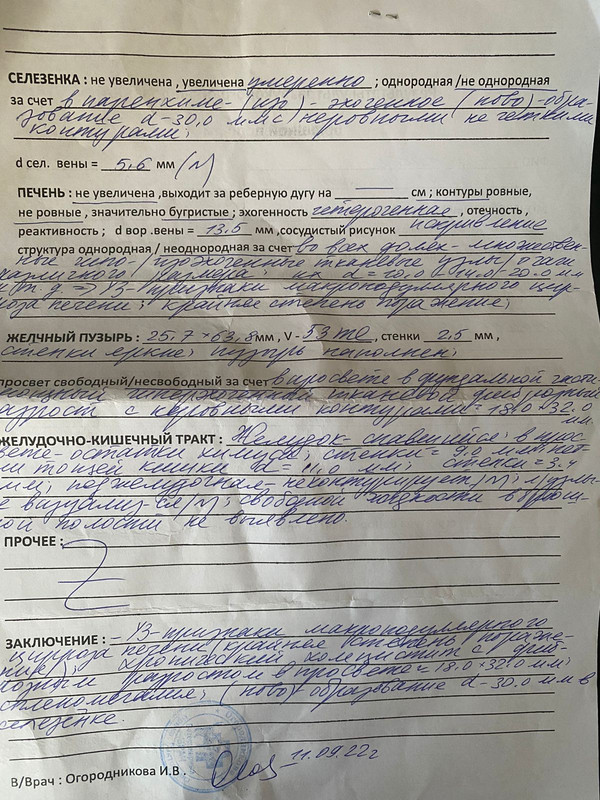 СЕЛЕЗЕНКА : не увеличена , увеличена умеренно ; однородная /не однородная
за счет в паренхиме- (изо)- эхогенное (ново)-обра-
зование d-30,0 мм с неровными не четкими
контурами;
d сел. вены = 5,6 мм (N)
ПЕЧЕНЬ : не увеличена ,выходит за реберную дугу на — см ; контуры ровные,
не ровные , значительно бугристые ; эхогенность гетерогенная , отечность ,
реактивность ; d вор .вены = 13.5 мм ,сосудистый рисунок искривление
структура однородная / неоднородная за счет во всех долях- множествен-
ные гипо- / изоэхогенные тканевые узлы/очаги
различного размера; их d=10,0-14,0-20.0 мм
и т. д => УЗ-признаки макронодулярного цир-
роза печени; крайняя степень поражения;
ЖЕЛЧНЫЙ ПУЗЫРЬ : 25,7 × 63,8мм , V - 53 ml , стенки 2,5 мм ,
стенки яркие; пузырь наполнен;
просвет свободный/несвободный за счет в просвете в фундальной части-
гиперэхогенный тканевой фиброзный
разрост с неровными контурами= 18.0×32.0
мм
ЖЕЛУДОЧНО-КИШЕЧНЫЙ ТРАКТ : Желудок спавшийся; в прос-
вете- остатки химуса; стенки= 9.0 мм; пет-
ли тощей кишки d= мм; стенки=3.4
мм; поджелудочная- неконтурирует (N); л/узлы-
не визуализ-ся (N); свободной жидкости в брюш-
ной полости не выявлено.
ПРОЧЕЕ :
Z
ЗАКЛЮЧЕНИЕ : - УЗ-признаки макронодулярного
цирроза печени (крайняя степень пораже-
ния); хронический холецистит с фиб-
розным разростом в просвете= 18.0×32.0 мм;
спленомегалия; (ново)- образование d-30.0 мм в
селезенке.
В/Врач : Огородникова И.В . 11.09.22г